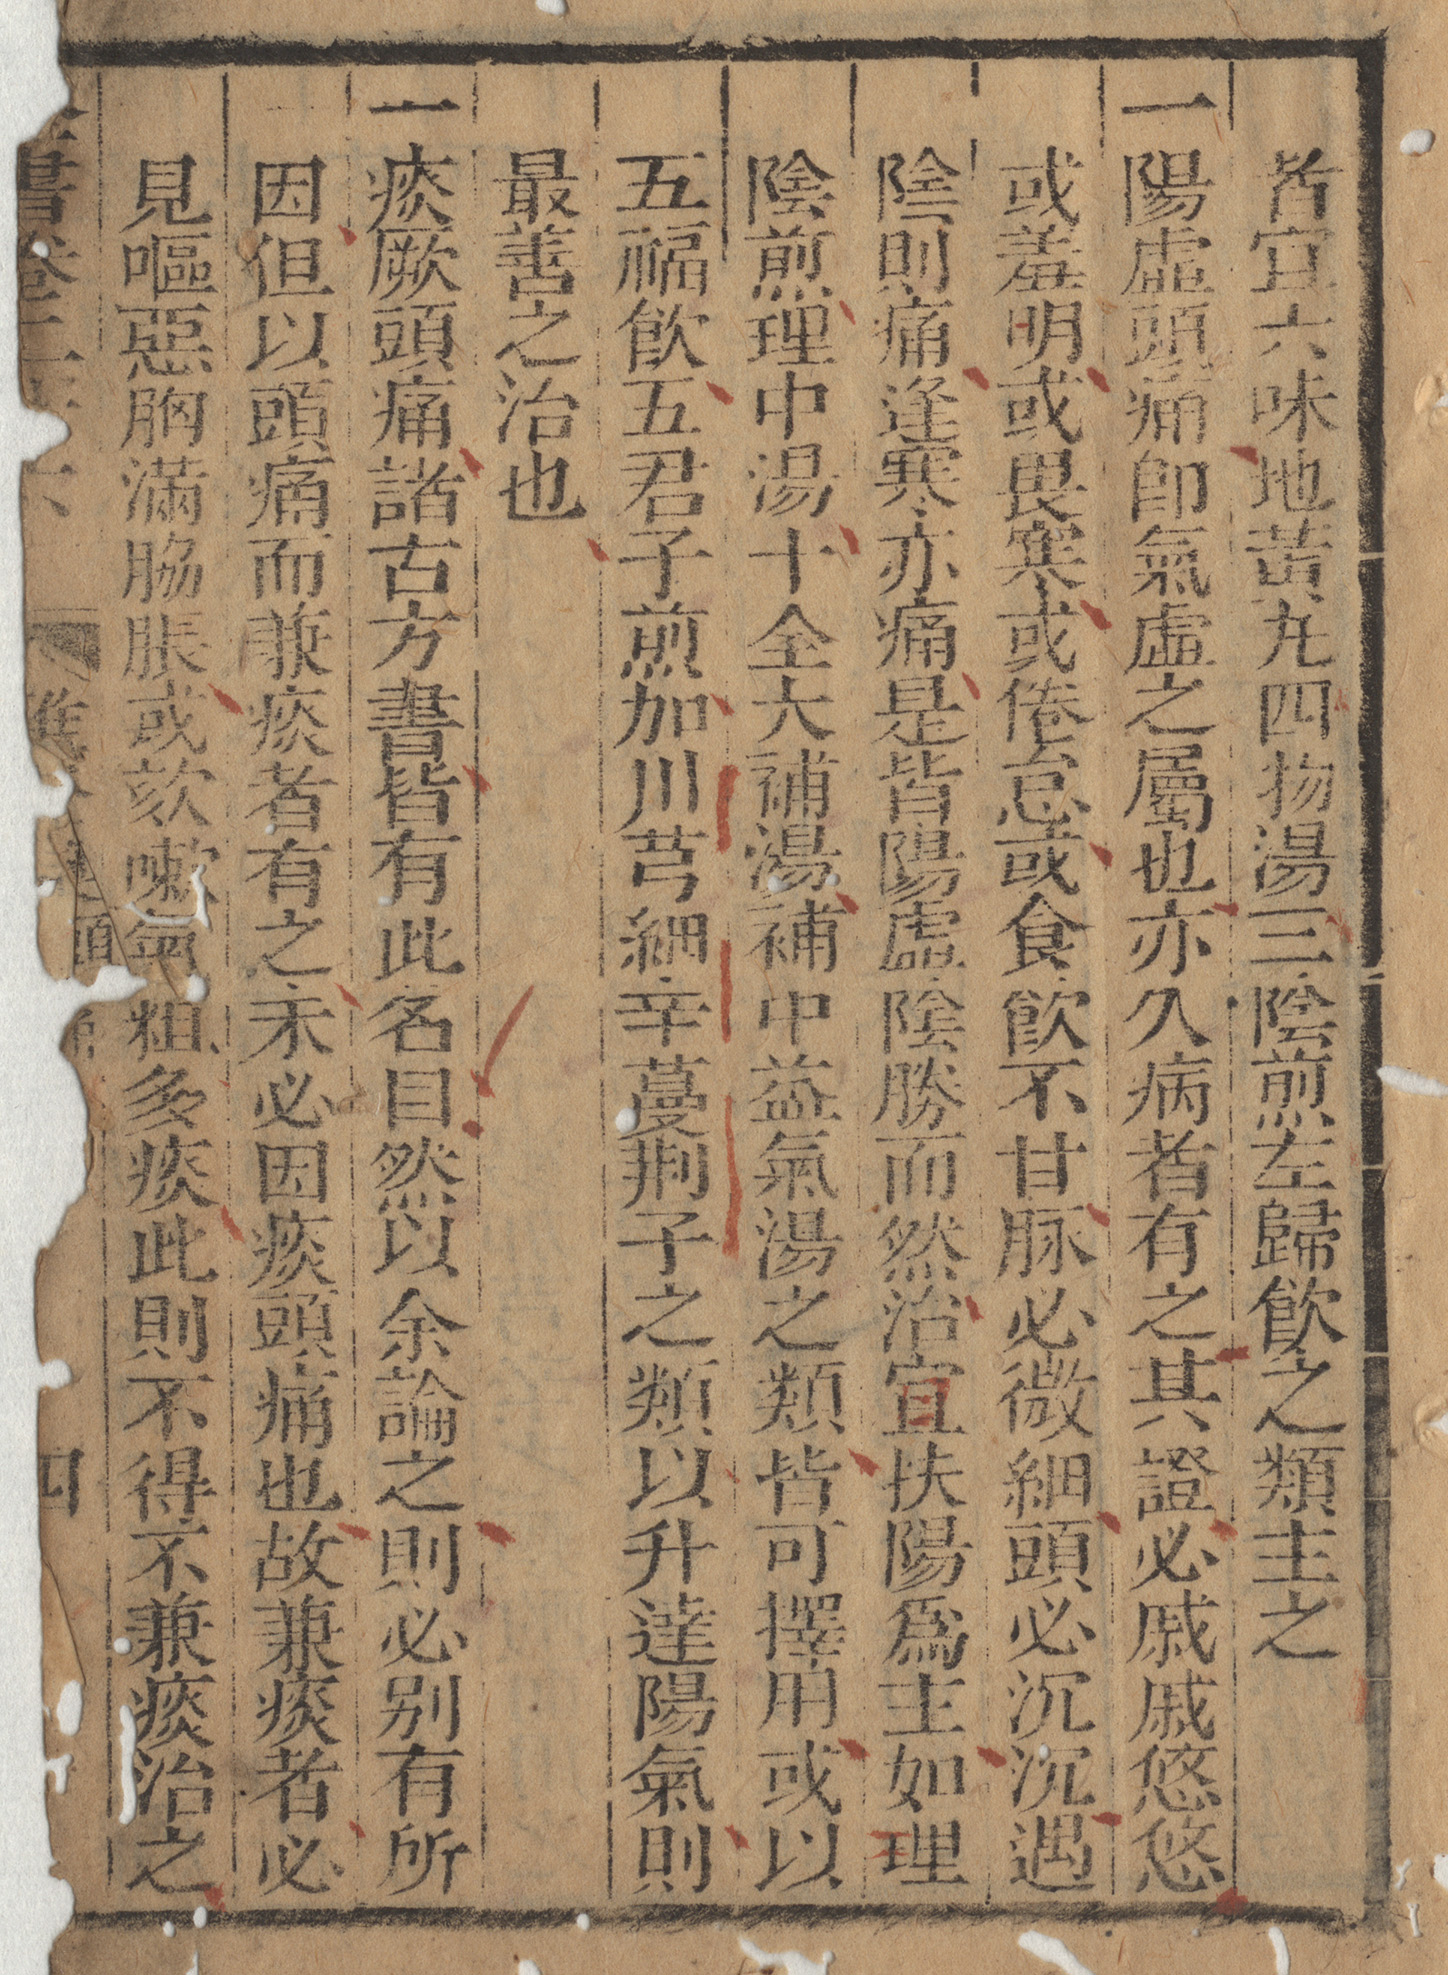 皆宜六味地黃丸四物湯三陰煎左歸飮之類主之
一陽虛頭痛卽氣虛之屬也亦久病者有之其證必戚戚悠悠
或羞明或畏寒或倦怠或食飮不甘脉必微細頭必沉沉遇
陰則痛逢寒亦痛是皆陽虛陰勝而然治宜扶陽爲主如理
陰煎理中湯十全大補湯補中益氣湯之類皆可擇用或以
五福飮五君子煎加川芎細辛蔓荆子之類以升達陽氣則
最善之治也
一痰厥頭痛諸古方書皆有此名目然以余論之則必别有所
因但以頭痛而兼痰者有之未必因痰頭痛也故兼痰者必
見嘔惡胸滿脇脹或欬嗽氣粗多痰此則不得不兼痰治之
書卷二十六 頭 四